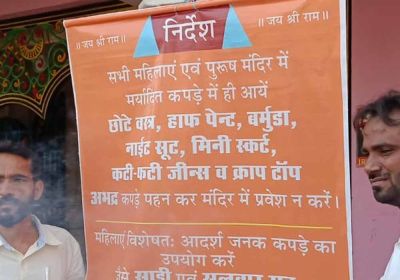 ॥ जय श्री राम ॥ निर्देश ॥ जय श्री राम ॥
सभी महिलाएं एवं पुरूष मंदिर में
मर्यादित कपड़े में ही आयें
छोटे वस्त्र, हाफ पेन्ट, बर्मुडा,
नाईट सूट, मिनी स्कर्ट,
कटी-फटी जीन्स व क्राप टॉप
अभद्र कपड़े पहन कर मंदिर में प्रवेश न करें।
महिलाएं विशेषत: आदर्श जनक कपड़े का
उपयोग करें
जैसे साड़ी एवं सलवार सूट